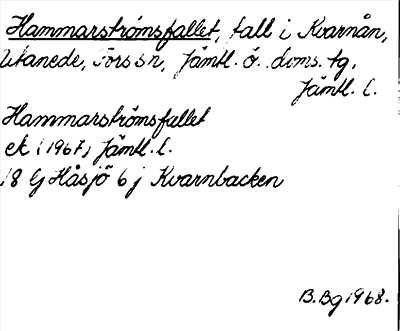 Hammarströmsfallet, fall i Kvarnån,
Utanede, Fors sn, Jämtl. ö. doms. tg,
Jämtl. l.
Hammarströmsfallet
ek (1967) Jämtl. l.
18 G Håsjö 6 j Kvarnbacken
B. Bg 1968.